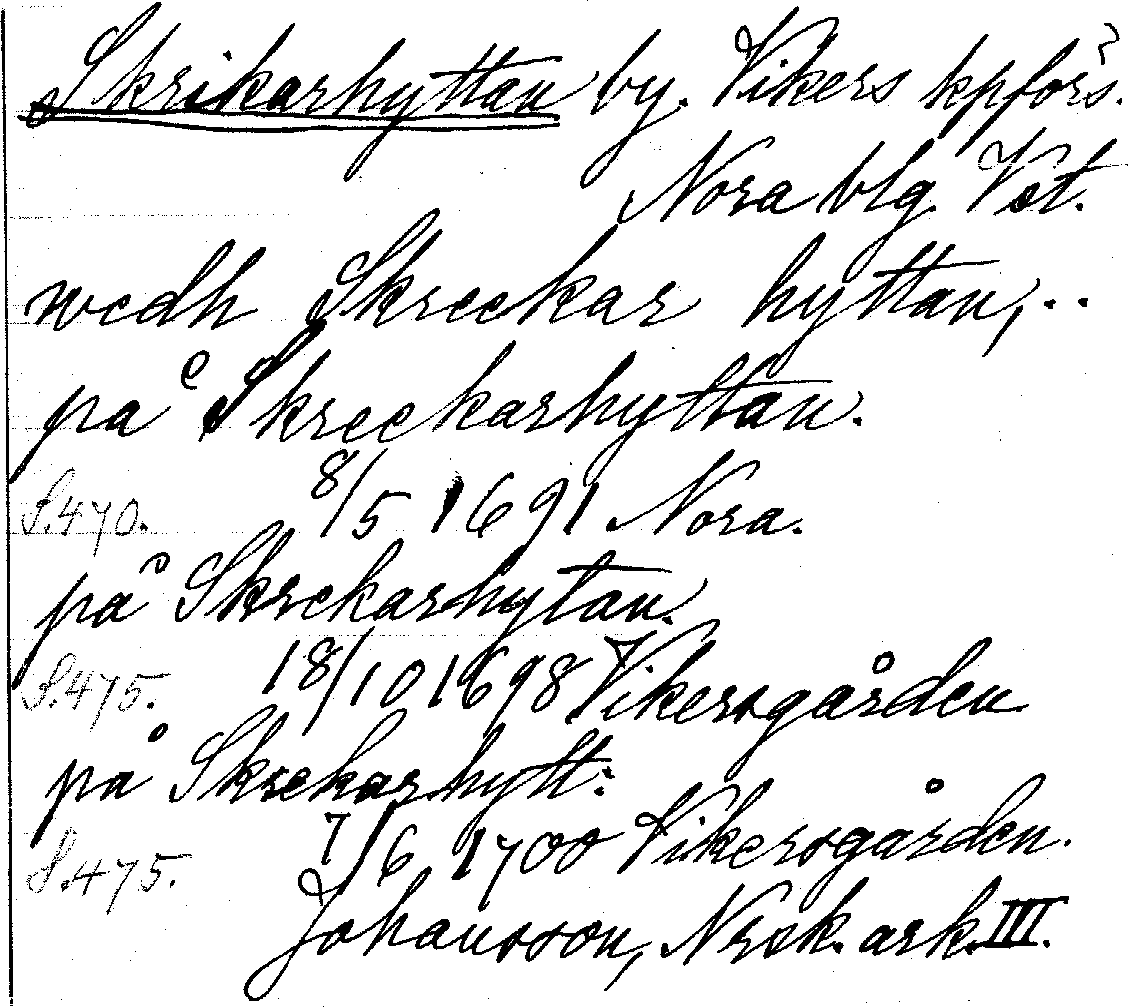 Skrikarhyttan by. Vikers kpförs.
Nora blg. Vst.
wedh Skreckar hyttan,..
på Skreckarhyttan.
S.470. 8/5 1691 Nora.
på Skrekarhytan.
S.475. 18/10 1698 Vikersgården
på Skrekarhytt:
S.475. 7/6 1700 Vikersgården.
Johansson, Nrsk. ark. III.